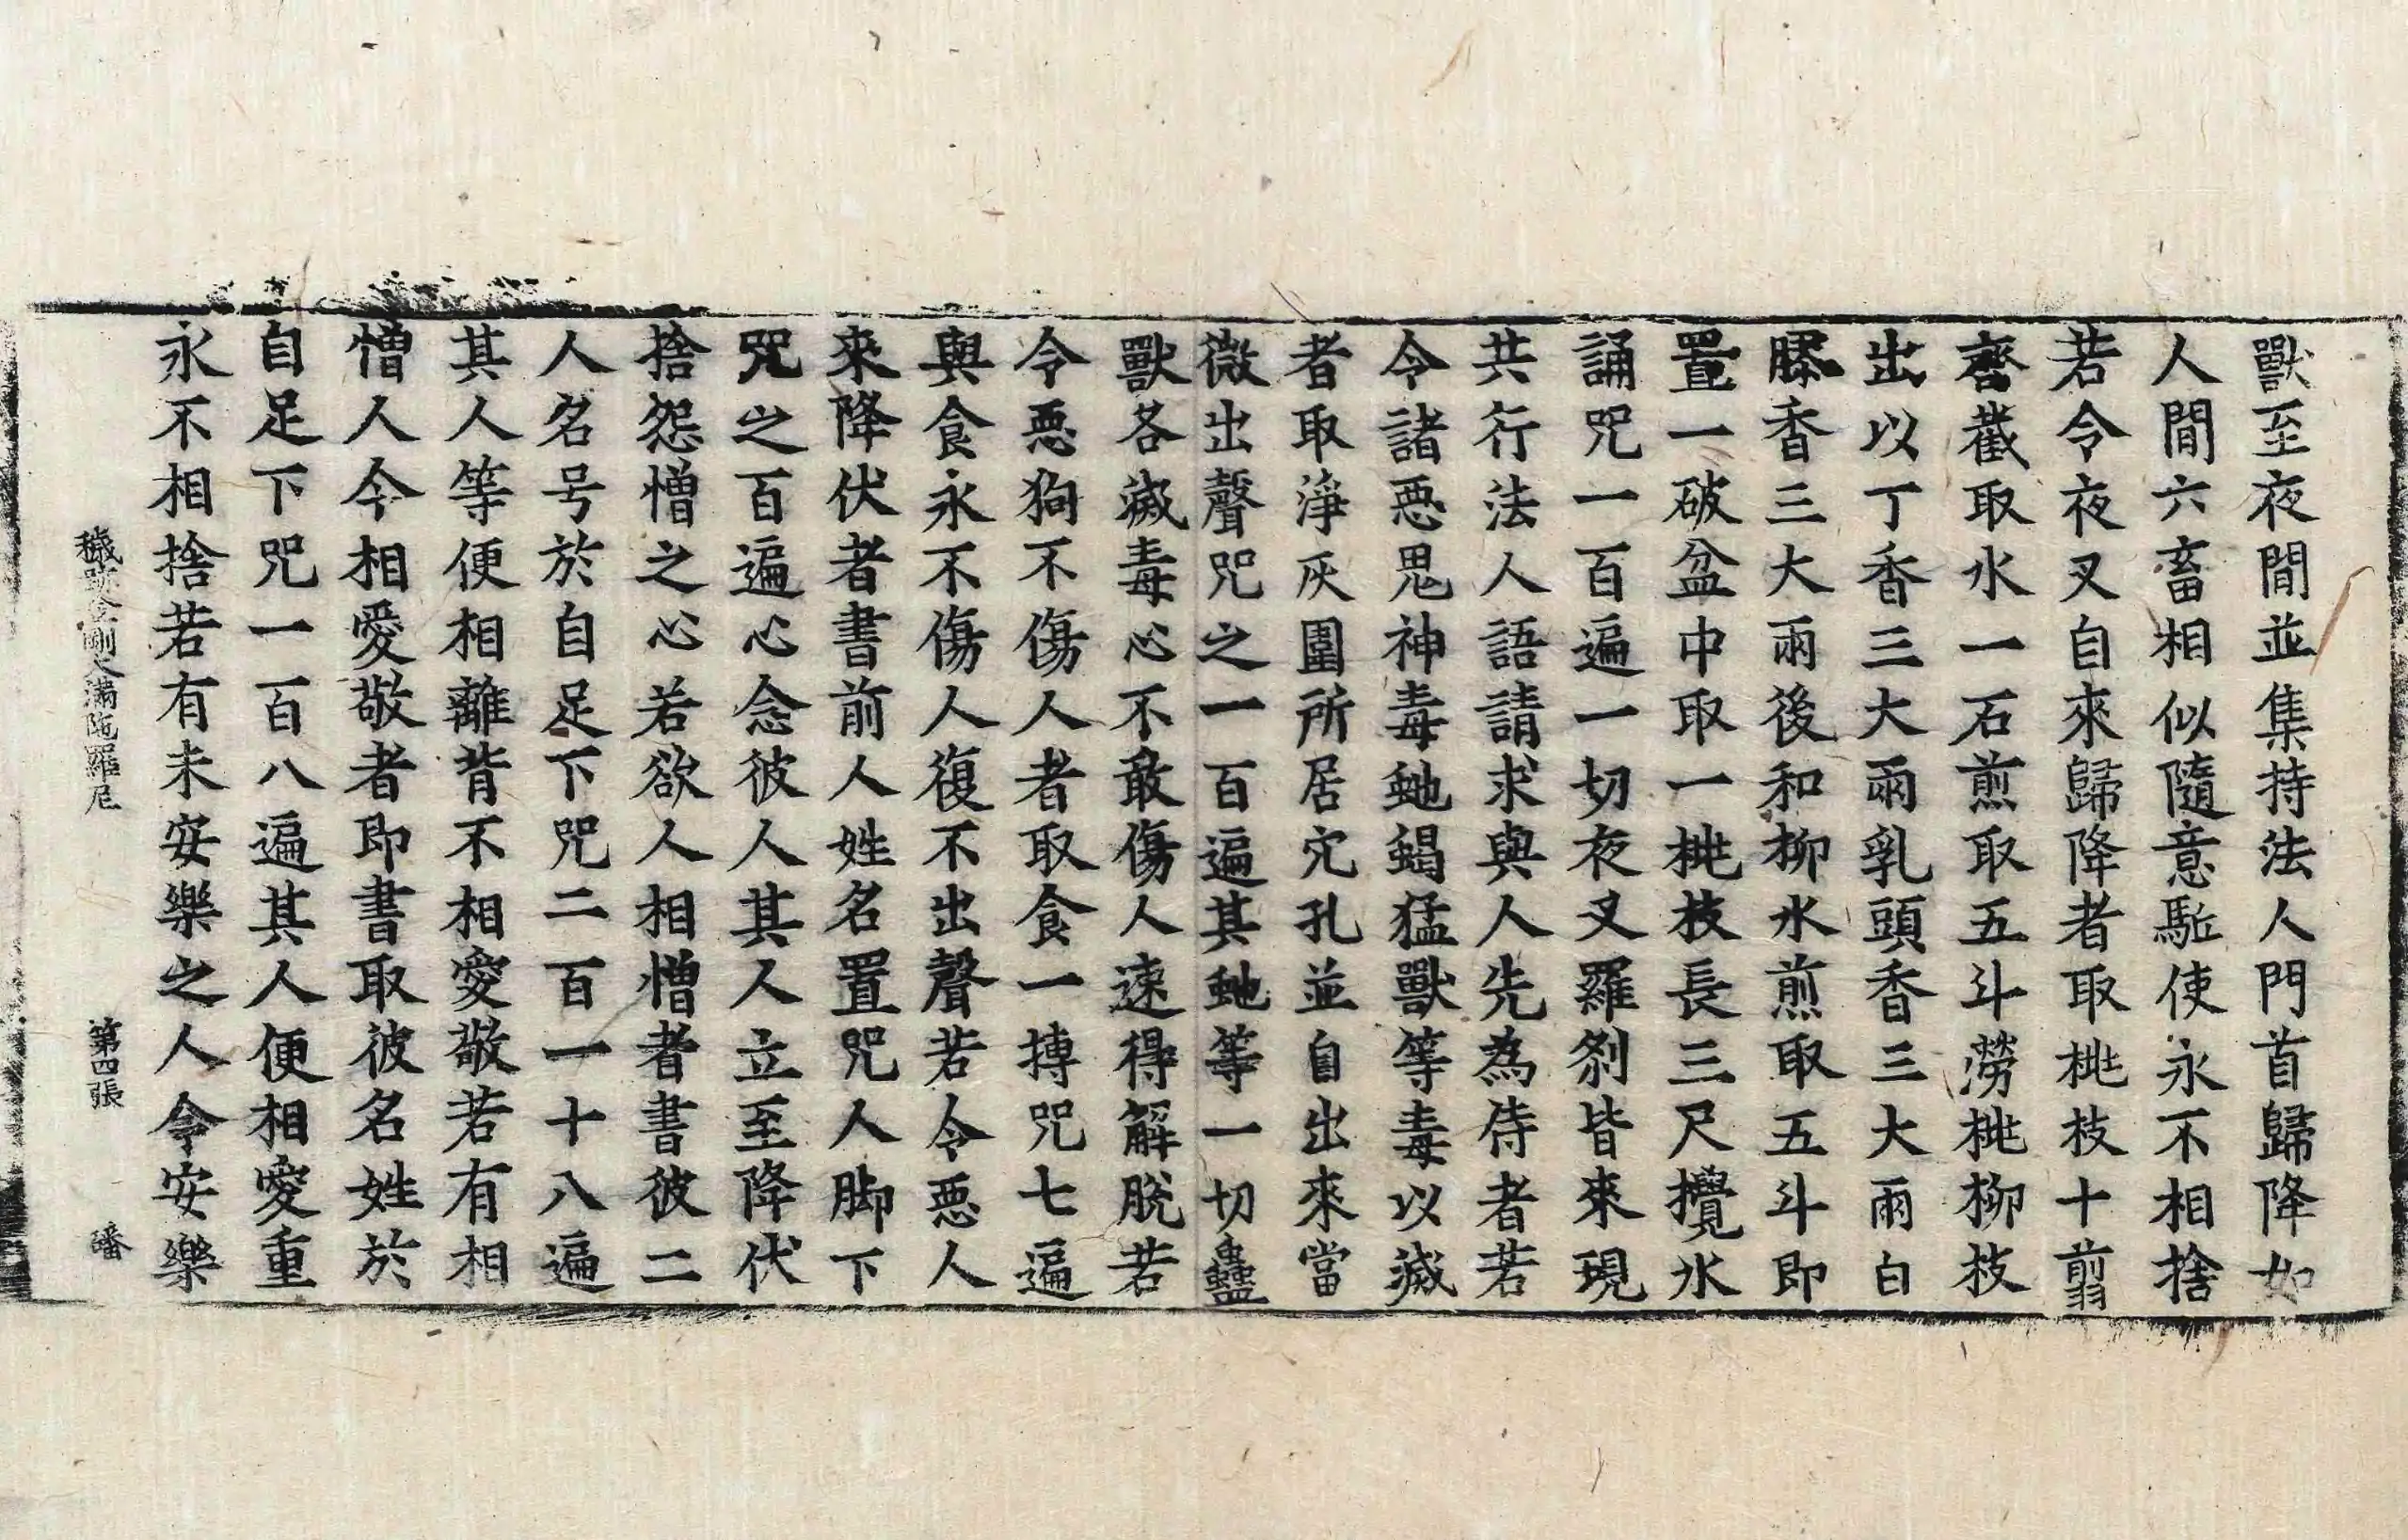 獸至夜間並集持法人門首歸降如
人間六畜相似隨意駈使永不相捨
若令夜叉自來歸降者取桃枝十翦
齊截取水一石煎取五斗濙桃柳枝
出以丁香三大兩乳頭香三大兩白
膠香三大兩後和柳水煎取五斗即
置一破盆中取一桃枝長三尺攪水
誦咒一百遍一切夜叉羅剎皆來現
共行法人語請求與人先為侍者若
令諸惡鬼神毒虵蝎猛獸等毒以滅
者取淨灰圍所居穴孔並自出來當
微出聲咒之一百遍其虵等一切蠱
獸各滅毒心不敢傷人速得解脫若
令惡狗不傷人者取食一摶咒七遍
與食永不傷人復不出聲若令惡人
來降伏者書前人姓名置咒人脚下
咒之百遍心念彼人其人立至降伏
捨怨憎之心若欲人相憎者書彼二
人名号於自足下咒二百一十八遍
其人等便相離背不相愛敬若有相
憎人令相愛敬者即書取彼名姓於
自足下咒一百八遍其人便相愛重
永不相捨若有未安樂之人令安樂
穢跡金剛大滿陁羅尼 第四張 皤